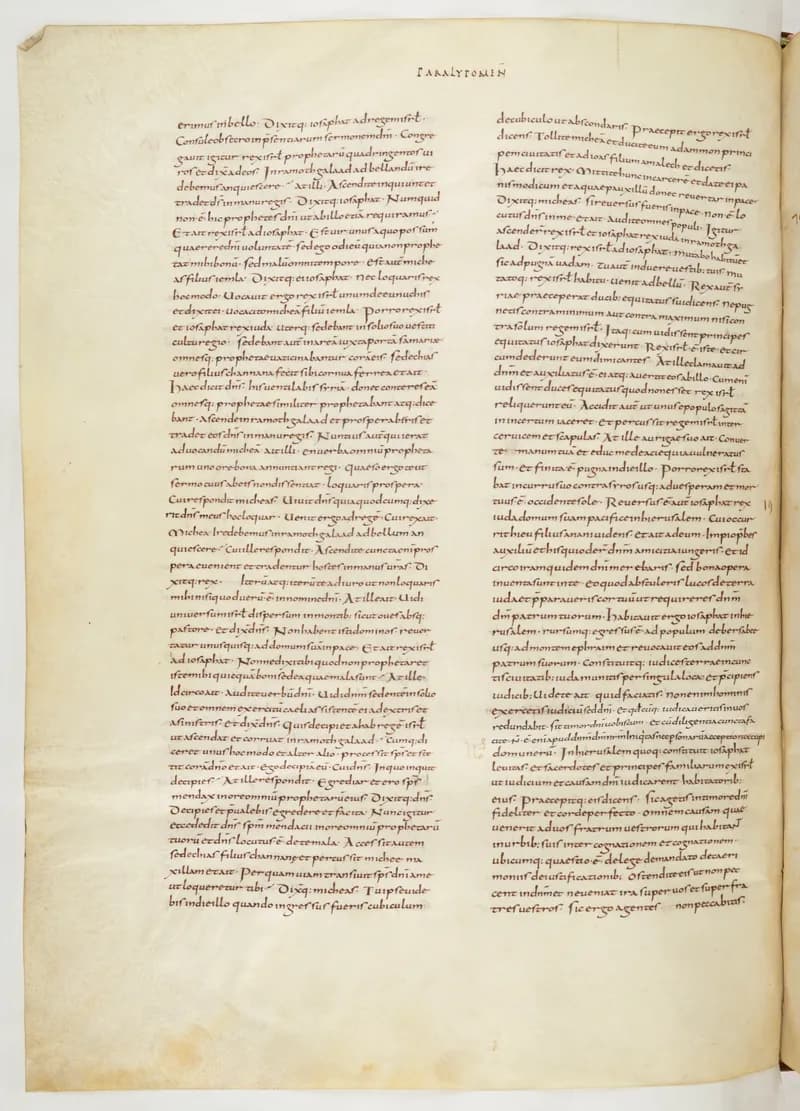 ΠΑΚΑLΥΓΟΜΕÑ
erimus in bello· Dixitq; iosaphat ad regem isrł·
Consule obsecro inpsentiarum sermonem dñi· Congre
gauit igitur rex isrł prophetarū quadringentos ui
ros et dix̄ ad eos· In ramoth galaad ad bellandū ire
debemus an quiescere· At illi· Ascende inquiunt et
tradet d̄s in manu regis· Dixitq; iosaphat· Numquid
non ē hic prophetes dñi ut ab illo etiā requiramus·
Et ait rex isrł ad iosaphat· Est uir unus a quo possum
quaerere dñi voluntatē· sed ego odi eū quia non prophe
tat mihi bonū· sed malū omni tempore· Est aut̄ miche
as filius iemla· Dixitq; ei iosaphat· Nec loquaris rex
hoc modo· Uocauit ergo rex isrł unum de eunuchis
et dixit ei· Uoca cito micheā filiū iemla· Porro rex isrł
et iosaphat rex iuda· uterq; sedebant in solio suo uestiti
cultu regio· sedebant aut̄ in area iuxta portā samariae
omnesq; prophetae uaticinabantur corā eis· sedechias
uero filius channana fecit sibi cornua ferrea et ait·
Haec dicit dñs· his uentilabis syriā· donec conteras eā
omnesq; prophetae similiter prophetabant atq; dice
bant· Ascende in ramoth galaad et prosperaberis et
tradet eos dñs in manu regis· Nuntius aut̄ qui ierat
ad uocandū micheā· Ait illi· en uerba omniū propheta
rum uno ore bona annuntiant regi· Quaeso ergo te ut
sermo tuus ab eis non dissentiat· loquaris prospera·
Cui respondit micheas· Uiuit dñs quia quodcumq; dixe
rit dñs meus hoc loquar· Uenit ergo ad regē· Cui rex ait·
Michea· Ire debemus in ramoth galaad ad bellum an
quiescere· Cui ille respondit· Ascendite cuncta enī pros
pera euenient et tradentur hostes in manus ur̄as· Di
xitq; rex· Iterū atq; iterū te adiuro ut non loquaris
mihi nisi quod uerū ē in nomine dñi· At ille ait· Uidi
uniuersum isrł dispersum in montib; sicut oues absq;
pastore· Et dix̄ dñs· Non habent isti dominos· reuer
tatur unusquisq; ad domum suā in pace· Et ait rex isrł
ad iosaphat· Nonne dixi tibi quod non prophetaret
iste mihi quicquā boni sed ea quae mala sunt· At ille·
Idcirco ait· Audite uerbū dñi· Uidi dñm sedentē in solio
suo et omnem exercitū caeli assistentē ei a dextris et
a sinistris· Et dix̄ dñs· Quis decipiet ahab regē isrł
ut ascendat et corruat in ramoth galaad· Cumq; di
ceret unus hoc modo et alter alio· processit sps̄ et ste
tit corā dño et ait· Ego decipiā eū· Cui dñs· In quo inquit
decipies· At ille respondit· Egrediar et ero sps̄
mendax in ore omniū prophetarū eius· Dixitq; dñs·
Decipies et p̄ualebis egredere et fac ita· Nunc igitur
ecce dedit dñs sp̄m mendacii in ore omniū prophetarū
tuorū et dñs locutus ē de te mala· Accessit autem
sedechias filius channane et percussit micheae ma
xillam et ait· Per quam uiam transiuit sps̄ dñi a me
ut loqueretur tibi· Dixq; micheas· Tu ipse uide
bis in die illo quando ingressus fueris cubiculum
de cubiculo ut abscondaris· Praecepit ergo rex isrł
dicens· Tollite micheā et ducite eum ad ammon princi
pem ciuitatis et ad ioas filium amalech et dicetis·
Haec dicit rex· Mittite hunc in carcere et date ei pa
nis modicum et aquae pauxillū donec reuertar in pace·
Dixitq; micheas· si reuersus fueris in pace· non ē lo
cutus dñs in me· Et ait· Audite omnes populi· Igitur
ascender̄ rex isrł et iosaphat rex iuda in ramoth ga
laad· Dixitq; rex isrł ad iosaphat· mutabo habitū et
sic ad pugnā uadam· tu aut̄ induere uestib; tuis· mu
tatoq; rex isrł habitu· uenit ad bellū· Rex aut̄ sy
riae praeceperat ducib; equitatus sui dicens· ne pug
netis contra minimum aut contra maximum nisi con
tra solum regem isrł· Itaq; cum uidissent principes
equitatus iosaphat dixerunt· Rex isrł ē iste· et cir
cumdederunt eum dimicantes· At ille clamauit ad
dñm et auxiliatus ē ei atq; auertit eos ab illo· Cum enī
uidissent duces equitatus quod non esset rex isrł
reliquerunt eū· Accidit aut̄ ut unus e populo sagittā
in incertum iaceret· et percussit regem isrł inter
ceruicem et scapulas· At ille aurigae suo ait· Conuer
te manum tuā et educ me de acie quia uulneratus
sum· Et finita ē pugna in die illo· Porro rex isrł sta
bat in curru suo contra syros usq; ad uesperam et mor
tuus ē occidente sole· Reuersus ē aut̄ iosaphat rex
iuda domum suam pacifice in hierusalem· Cui occur
rit hieu filius anani uidens· Et ait ad eum· Impio p̄bes
auxiliū et his qui oder̄ dñm amicitia iungeris· et id
circo iram quidem dñi merebaris· sed bona opera
inuenta sūnt in te· Et quod abstuleris lucos de terra
iuda et p̄paraueris cor tuū ut requireres dñm
dm̄ patrum tuorum· Habitauit ergo iosaphat in hie
rusalem· rursumq; egressus ē ad populum de bersabee
usq; ad montem ephraim et reuocauit eos ad dñm
patrum suorum· Constituitq; iudices terrae in cunc
tis ciuitatib; iuda munitis per singula loca· et p̄cipiens
iudicib; Uidete ait· quid faciatis· non enim hominis
exercetis iudiciū sed dñi· et qđcūq; iudicaueritis in uos
redundabit· sit timor dñi uobiscum· et cū diligentia cuncta fa
cite· Nō ē enī apud dñm dm̄ nrm̄ iniquitas nec personarū acceptio nec cupi
do munerū· In hierusalem quoq; constituit iosaphat
leuitas· et sacerdotes et principes familiarum ex isrł
ut iudicium et causam dñi iudicarent habitatorib;
eius· Praecepitq; eis dicens· sic agetis in timore dñi
fideliter et corde perfecto· Omnem causam quae
uenerit ad uos fratrum uestrorum qui habitant
in urbib; suis inter cognationem et cognationem·
ubicumq; quaestio ē de lege· de mandato· de caeri
moniis· de iustificationib; Ostendite eis ut non pec
cent in dñm· et ne ueniat ira super uos et super fra
tres uestros· sic ergo agentes non peccabitis·